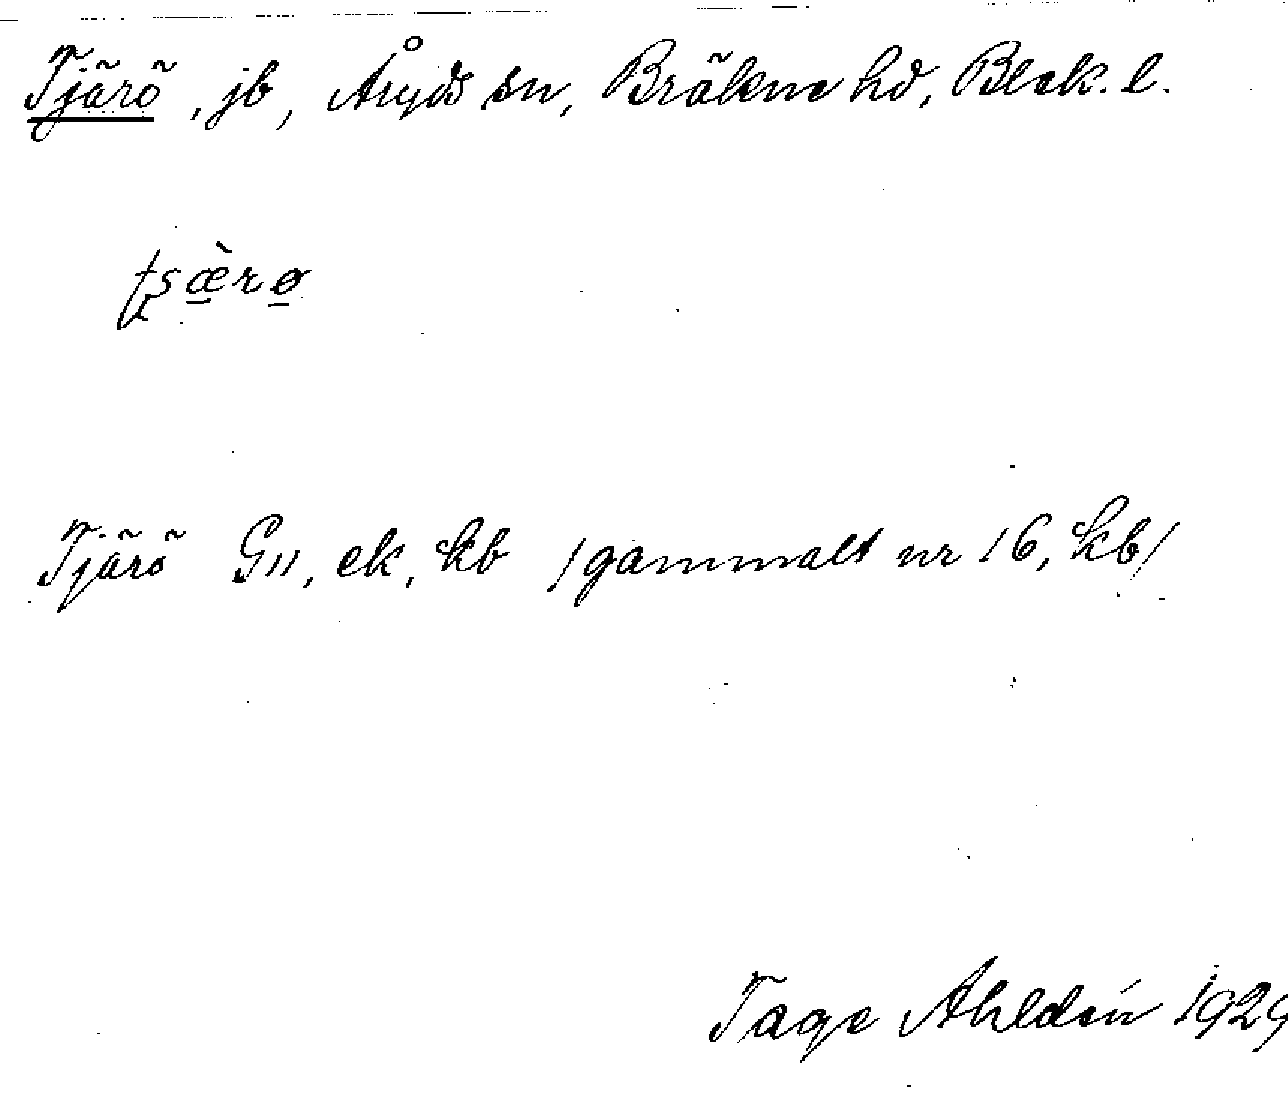 Tjärö, jb, Åryds sn, Bräkne hd, Blek. l.
Tjärö G11, ek, kb /gammalt nr 16, kb/
Tage Ahldén 1929